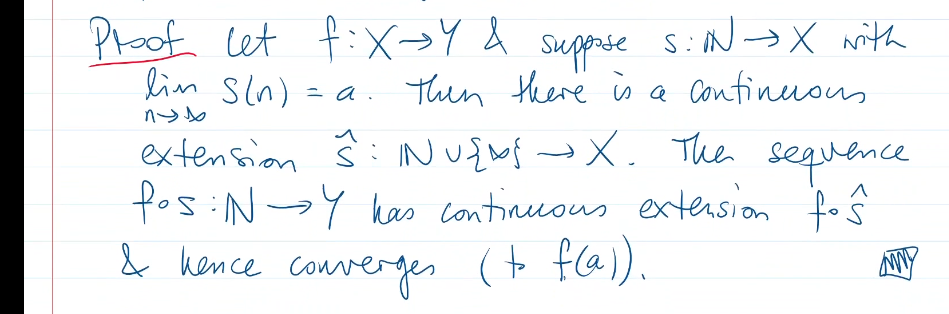 Proof Let f: X → Y & suppose s: ℕ → X with
lim n→∞ s(n) = a. Then there is a continuous
extension ŝ: ℕ ∪ {∞} → X. The sequence
f∘s: ℕ → Y has continuous extension f∘ŝ
& hence converges (to f(a)).